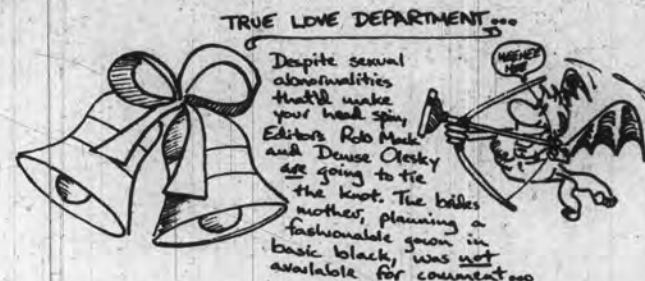 TRUE LOVE DEPARTMENT...
Despite sexual
abnormalities
that'd make
your head spin,
Editors Rob Mack
and Denise Olesky
are going to tie
the knot. The brides
mother, planning a
fashionable gown in
basic black, was not
available for comment...